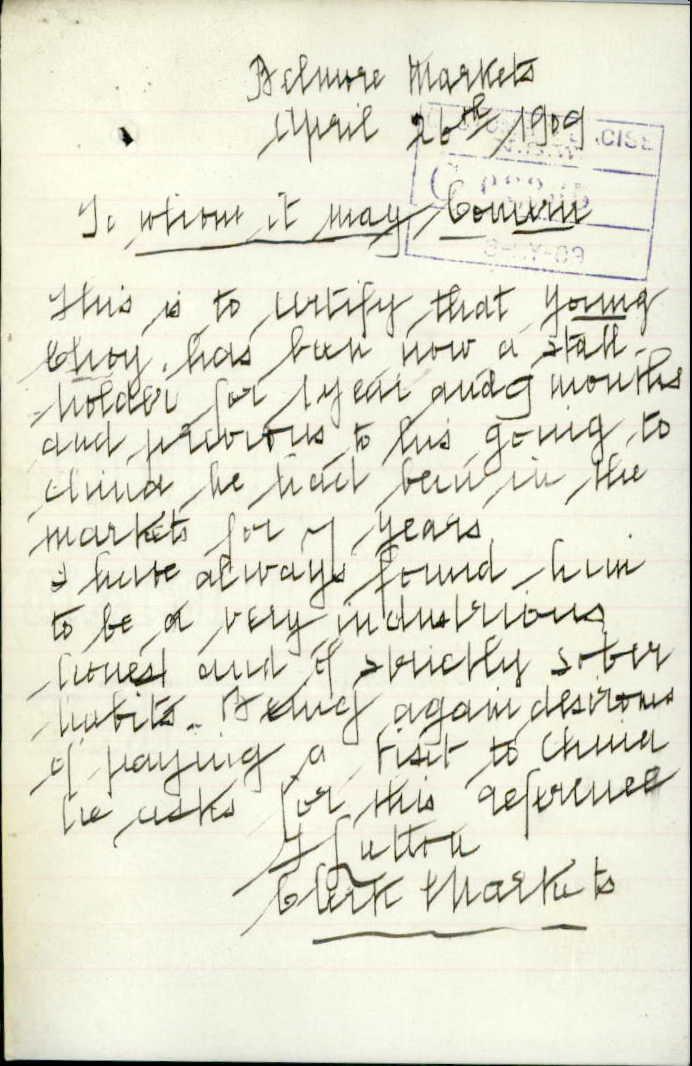 Belmore Markets
April 26th/1909
To whom it may Concern
This is to certify that Young
Choy. has been now a stall-
holder for 1 year and 9 months
and previous to his going to
China he had been in the
markets for 7 years
I have always found him
to be a very industrious
honest and of strictly sober
habits. Being again desirous
of paying a visit to China
he asks for this reference
Sutton
Clerk Markets